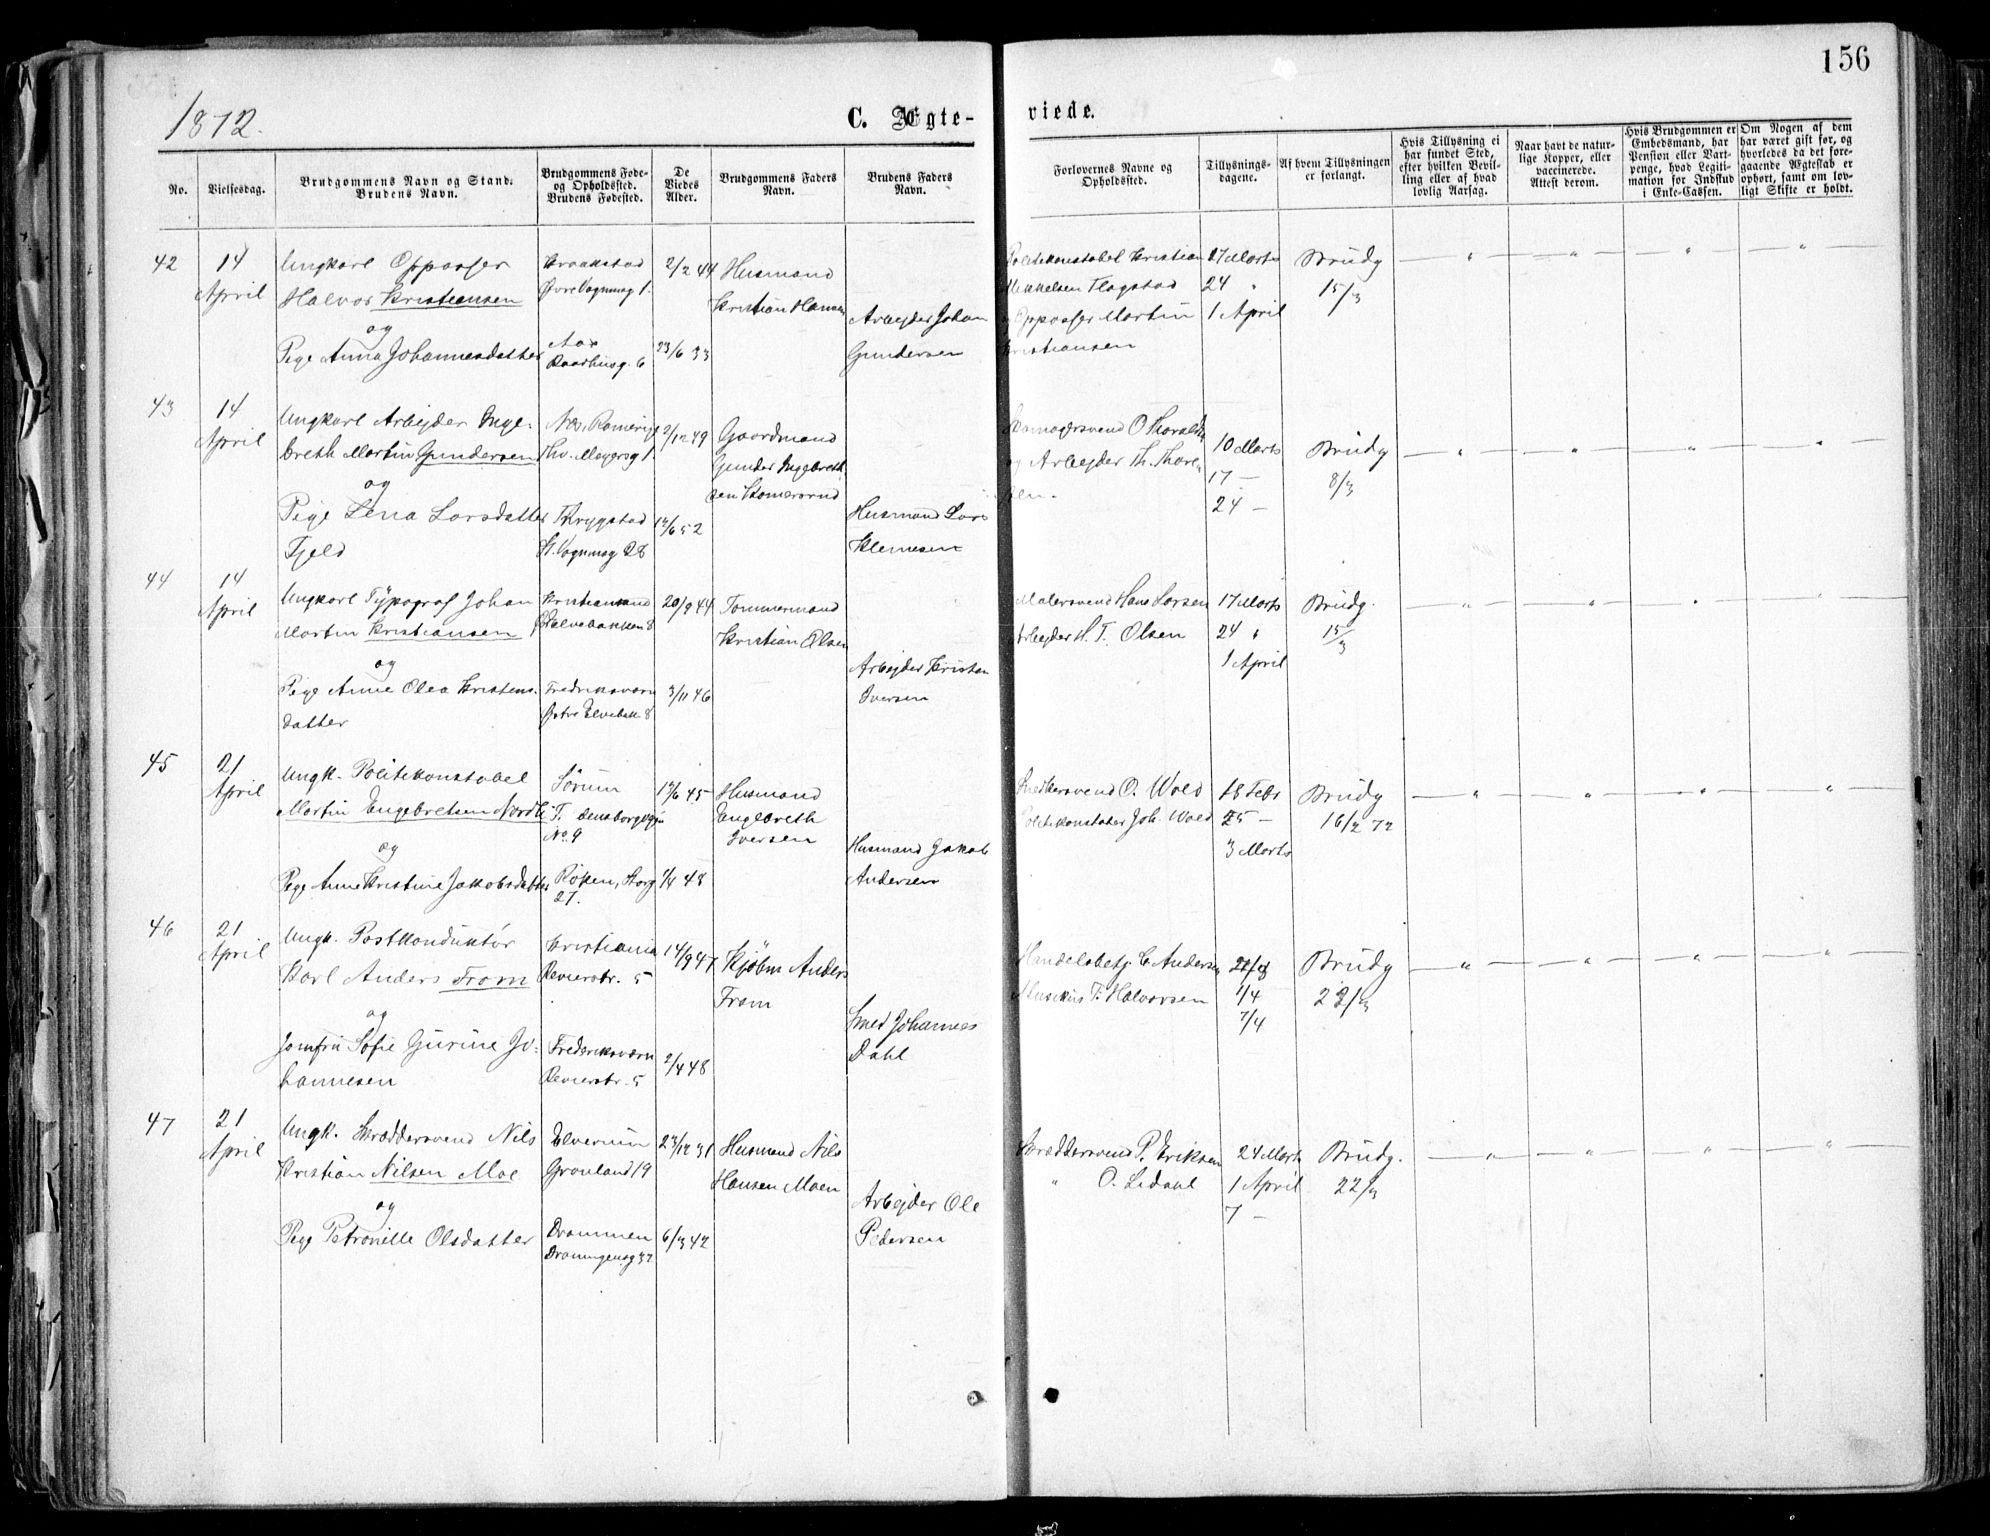 156
1872.
C. Ægte-
viede.
No.
Vielsesdag.
Brudgommens Navn og Stand.
Brudens Navn.
Brudgommens Føde-
og Opholdssted.
Brudens Fødested.
De
Viedes
Alder.
Brudgommens Faders
Navn.
Brudens Faders
Navn.
Forlovernes Navne og
Opholdssted.
Tillysnings-
dagene.
Af hvem Tillysningen
er forlangt.
Hvis Tillysning ei
har fundet Sted,
efter hvilken Bevil-
ling eller af hvad
lovlig Aarsag.
Naar havt de natur-
lige Kopper, eller
vaccinerede.
Attest derom.
Hvis Brudgommen er
Embedsmand, har
Pension eller Vart-
penge, hvad Legiti-
mation for Indskud
i Enke-Cassen.
Om Nogen af dem
har været gift før, og
hvorledes da det fore-
gaaende Ægteskab er
ophørt, samt om lov-
ligt Skifte er holdt.
42
14
April
Ungkarl Oppasser
Halvor Kristiansen
og
Pige Anna Johannesdatter
Kraakstad
Øvre Vognmsg 1.
Aas
Raadhusg. 6
2/2 44
23/6 33
Husmand
Kristian Hansen
Arbejder Johan
Gundersen
Politikonstabel Kristian
Mikkelsen Flagstad
og Oppasser Martin
Kristiansen
17 Marts
24 "
1 April
Brudg
15/3
43
14
April
Ungkarl Arbejder Inge-
breth Martin Gundersen
og
Pige Lena Larsdatter
Fjeld
Næs, Romerige
Thv. Meyersg 1.
Trygstad
St. Vognmsg 28
2/12 49
17/6 52
Gaardmand
Gunder Ingebreth
sen
Husmand Lars
Klemesen
og Arbejder Th. Thore
sen.
10 Marts
17 —
24 —
Brudg
8/3
44
14
April
Ungkarl Typograf Johan
Martin Kristiansen
og
Pige Anne Olea Kristens-
datter
Kristiansand
Fredriksværn
Østre Elvebak. 8
20/9 44
3/11 46
Tømmermand
Kristian Olsen
Arbejder Kristen
Iversen
Malersvend Hans Larsen
Arbejder H. T. Olsen
17 Marts
24 "
1 April
Brudg.
15/3
45
21
April
Ungk. Politikonstabel
Martin Engebretsen Nordli
og
Pige Anne Kristine Jakobsdatter
Sørum
No. 9
Røken, Storg
27.
17/6 45
1/4 48
Husmand
Engebreth
Iversen
Husmand Jakob
Andersen
Snedkersvend O. Wold
Politikonstabel Joh. Wold
18 Febr
25 —
3 Marts
Brudg
16/2 72
46
21
April
Ungk. Postkonduktør
Karl Anders From
og
Jomfru Sofie Gurine Jo-
hannesen
Kristiania
Revierstr. 5
Frederiksværn
Revierstr. 5
14/9 47
2/4 48
Kjøbm Anders
From
Smed Johannes
Dahl
Handelsbetj. C. Andersen
Musikus T. Halvorsen
1/4
7/4
Brudg
22/3
47
21
April
Ungk. Skræddersvend Nils
Kristian Nilsen Moe
og
Pige Petronille Olsdatter
Elverum
Grønland 19
Drammen
Dronningensg 32
23/12 31
6/3 42
Husmand Nils
Hansen Moen
Arbejder Ole
Pedersen
Skræddersvend P. Eriksen
" O. Lidahl
24 Marts
1 April
7 —
Brudg.
22/3